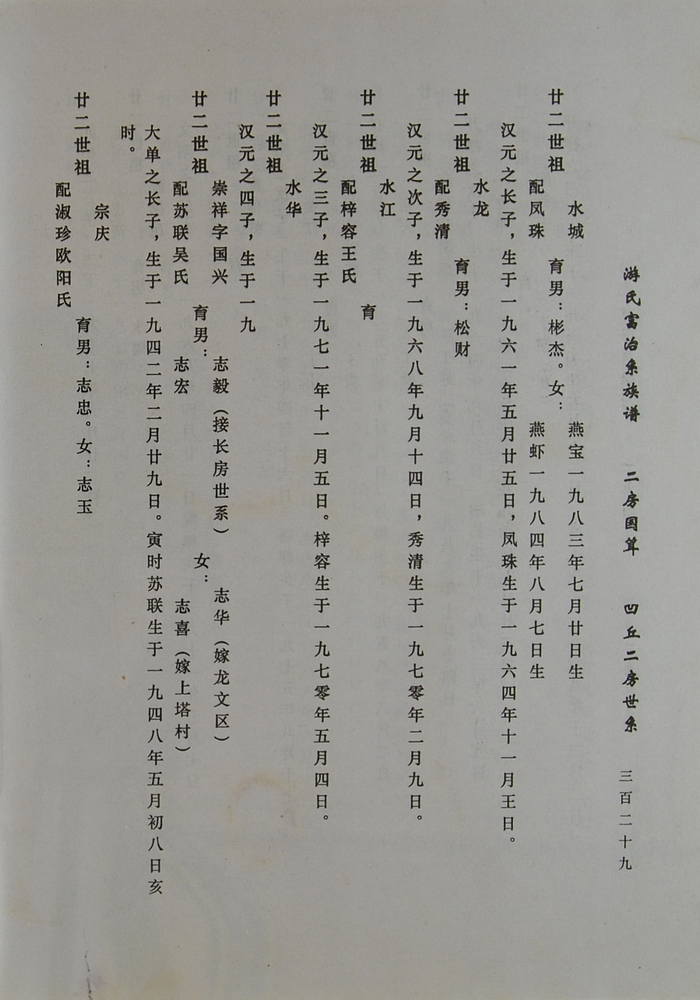 游氏富治系族谱 二房国算 凹丘二房世系 三百二十九
水城
廿二世祖 育男：彬杰。女：
燕宝一九八三年七月廿日生
配凤珠 燕虾一九八四年八月七日生
汉元之长子，生于一九六一年五月廿五日，凤珠生于一九六四年十一月王日。
水龙
廿二世祖 育男：松财
配秀清
汉元之次子，生于一九六八年九月十四日，秀清生于一九七零年二月九日。
水江
廿二世祖 育
配梓容王氏
汉元之三子，生于一九七一年十一月五日。梓容生于一九七零年五月四日。
水华
廿二世祖
汉元之四子，生于一九
崇祥字国兴 志毅（接长房世系） 志华（嫁龙文区）
廿二世祖 育男： 女：
配苏联吴氏 志宏 志喜（嫁上塔村）
大单之长子，生于一九四二年二月廿九日。寅时苏联生于一九四八年五月初八日亥
时。
宗庆
廿二世祖 育男：志忠。女：志玉
配淑珍欧阳氏